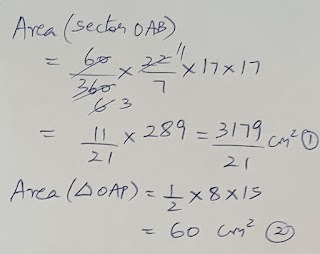 Area (sector OAB)
= 60/360 × 22/7 × 17 × 17
6 3 11
= 11/21 × 289 = 3179/21 cm² ①
Area (△OAP) = 1/2 × 8 × 15
= 60 cm² ②